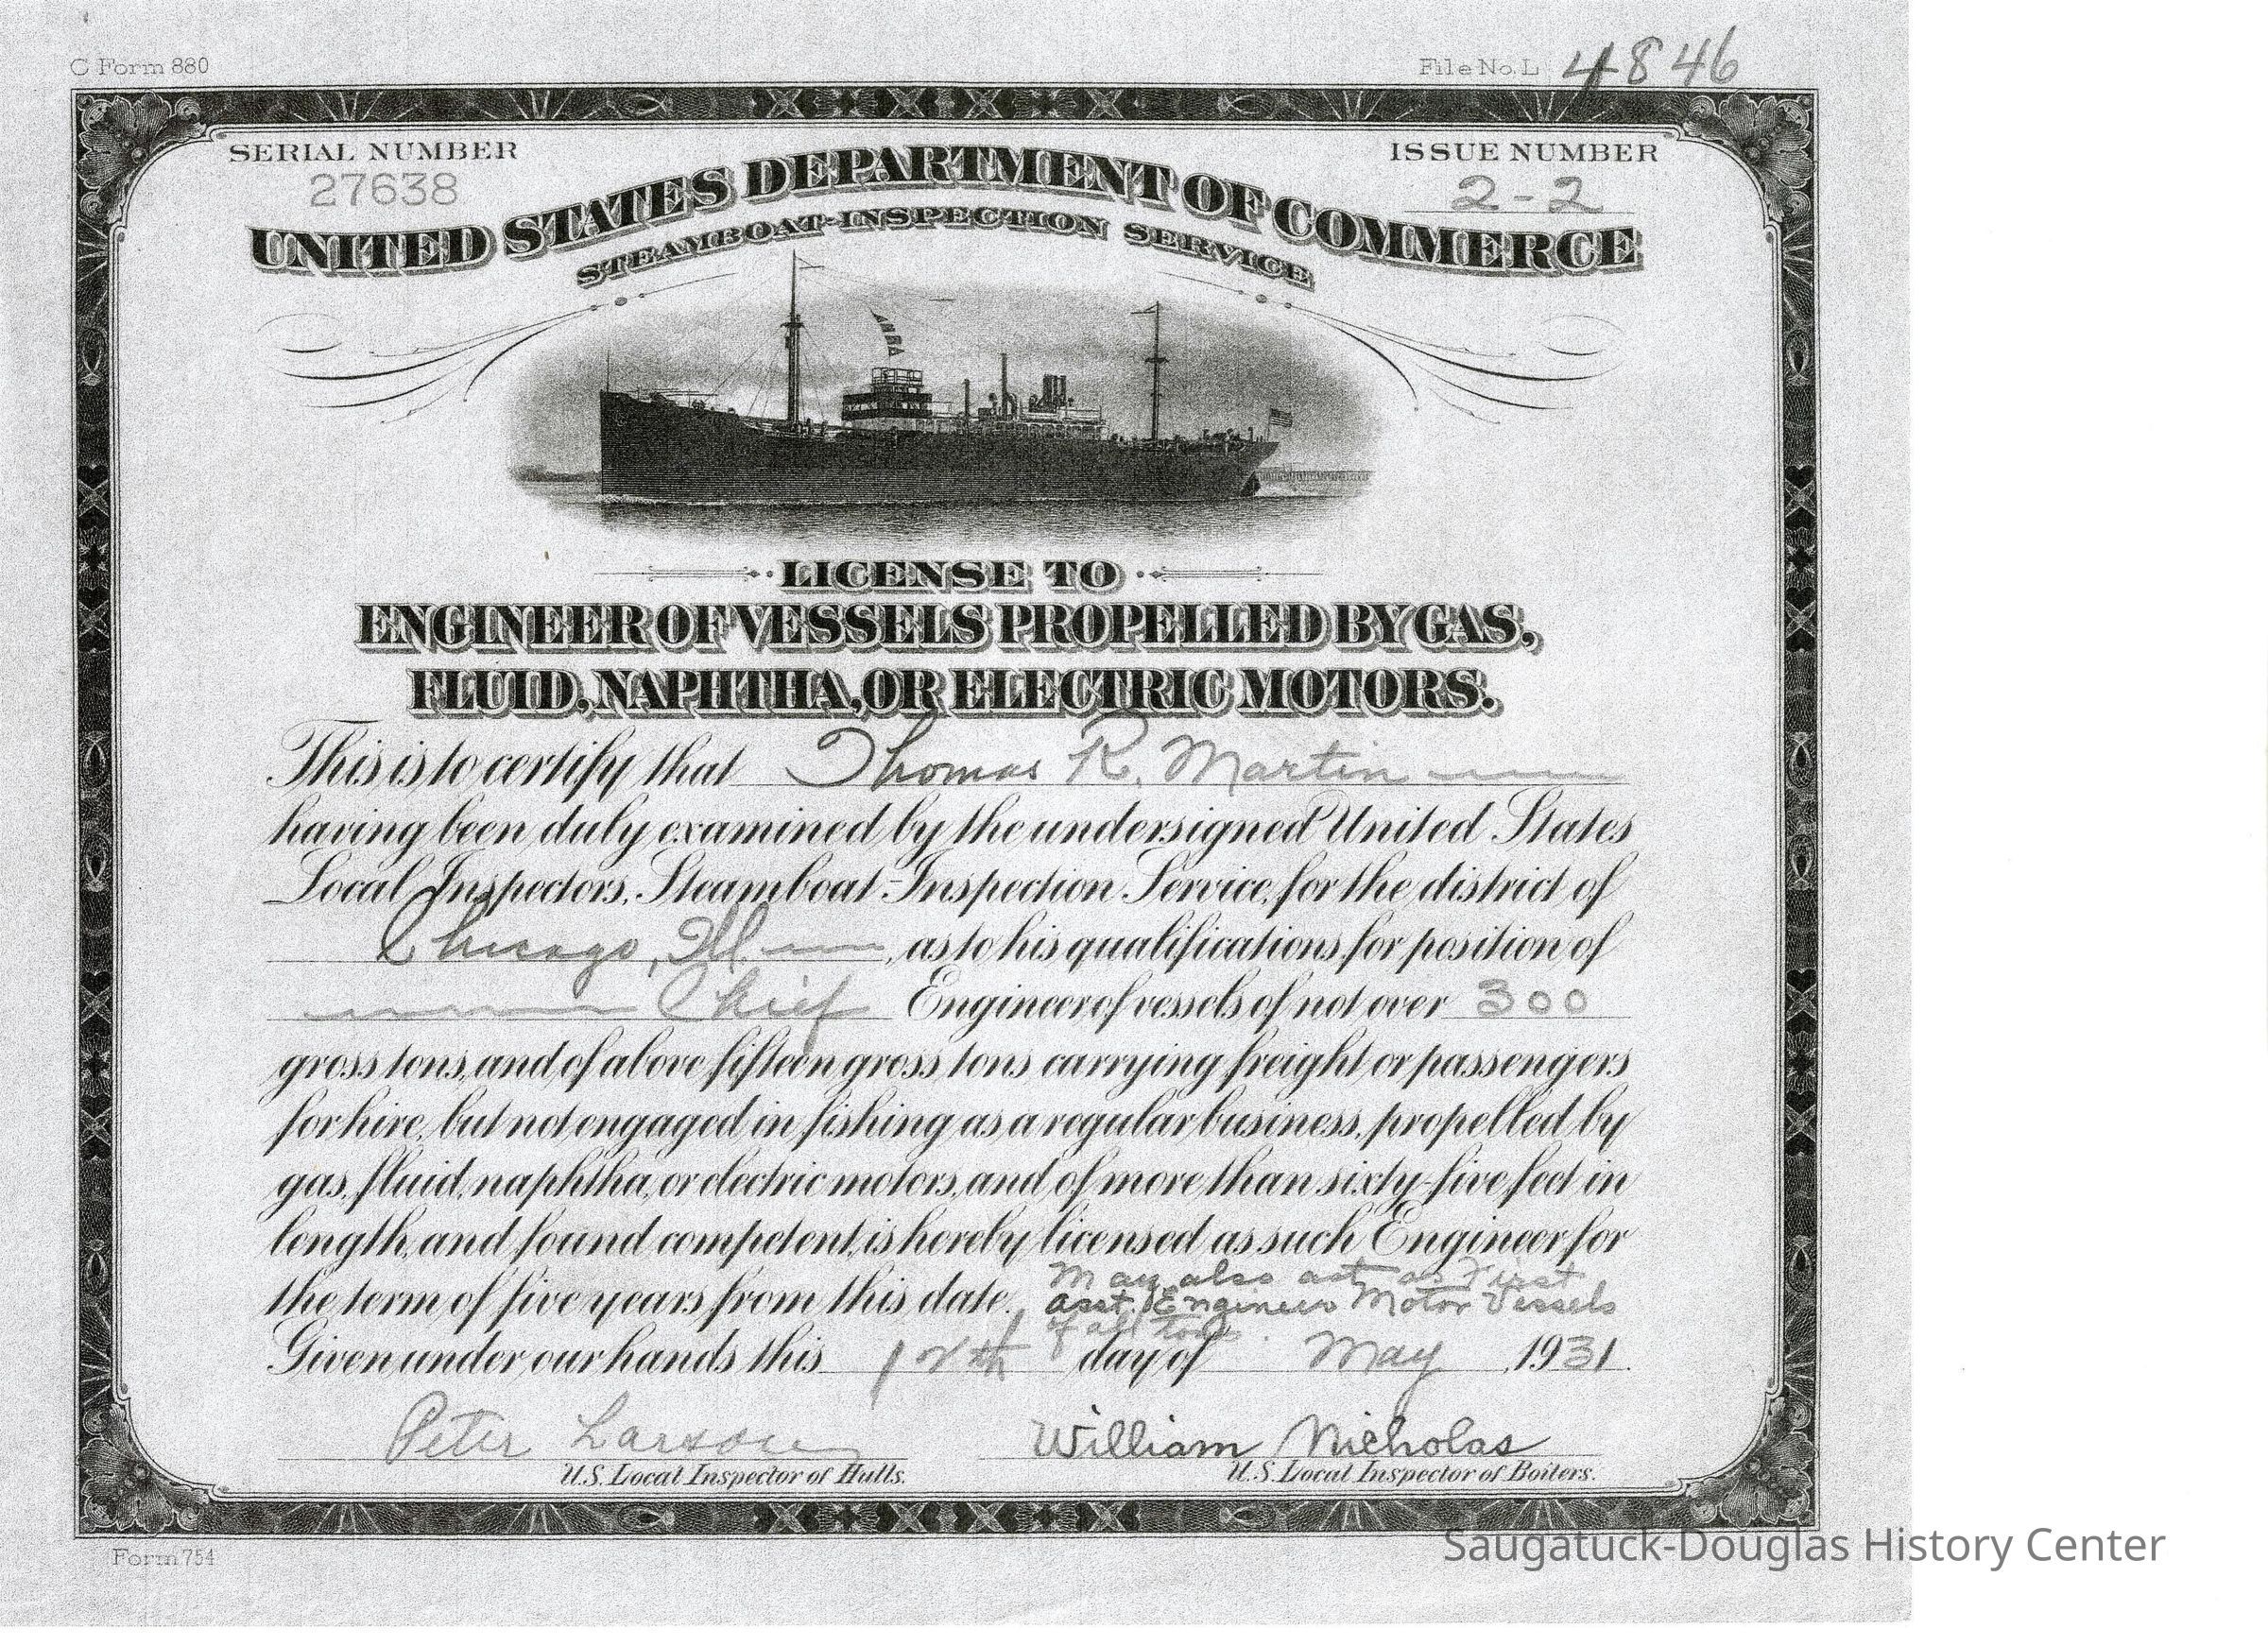 C Form 880
File No. L 4846
SERIAL NUMBER
27638
ISSUE NUMBER
2-2
UNITED STATES DEPARTMENT OF COMMERCE
STEAMBOAT-INSPECTION SERVICE
LICENSE TO
ENGINEER OF VESSELS PROPELLED BY GAS,
FLUID, NAPHTHA, OR ELECTRIC MOTORS.
This is to certify that Thomas R. Martin
having been duly examined by the undersigned United States
Local Inspectors, Steamboat-Inspection Service, for the district of
Chicago, Ill. , as to his qualifications for position of
Chief Engineer of vessels of not over 300
gross tons, and of above fifteen gross tons carrying freight or passengers
for hire, but not engaged in fishing as a regular business, propelled by
gas, fluid, naphtha, or electric motors, and of more than sixty-five feet in
length, and found competent, is hereby licensed as such Engineer for
the term of five years from this date. May also act as First
asst. Engineer Motor Vessels
of all tons.
Given under our hands this 12th day of May , 1931.
Peter Larson
William Nicholas
U.S. Local Inspector of Hulls.
U.S. Local Inspector of Boilers.
Form 754
Saugatuck-Douglas History Center